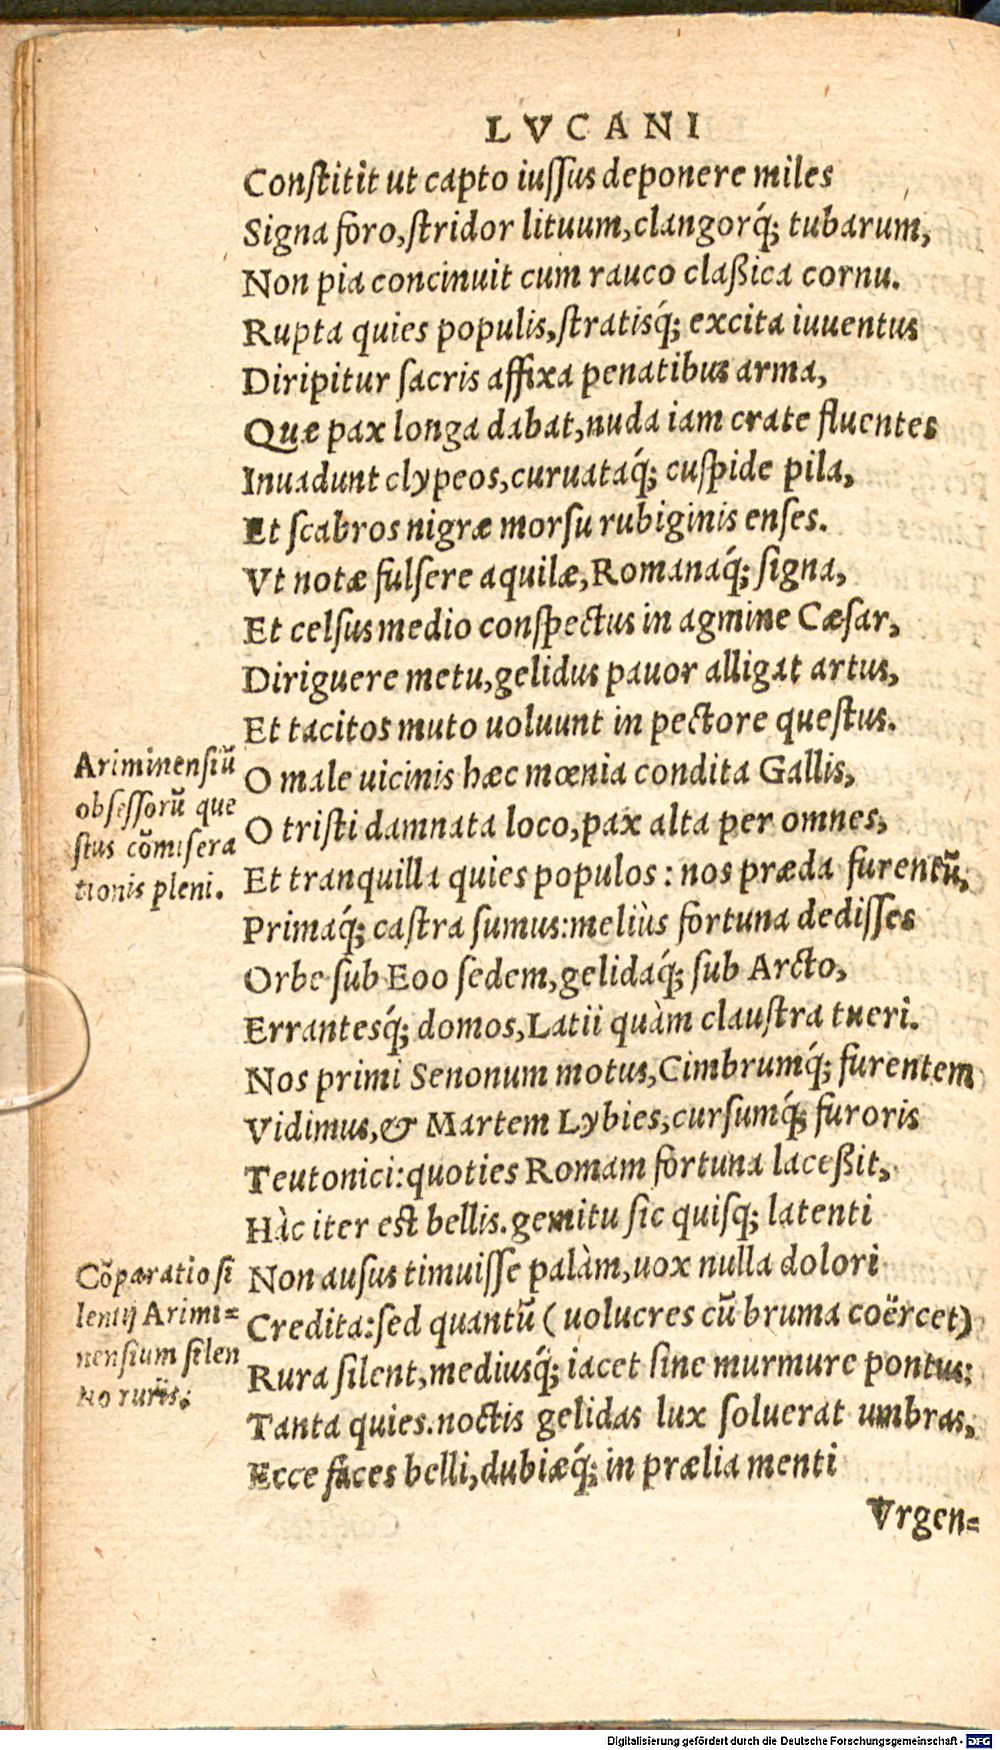 LVCANI
Conſtitit ut capto iuſſus deponere miles
Signa foro,ſtridor lituum,clangorq́; tubarum,
Non pia concinuit cum rauco claßica cornu.
Rupta quies populis,ſtratisq́; excita iuuentus
Diripitur ſacris affixa penatibus arma,
Quæ pax longa dabat,nuda iam crate fluentes
Inuadunt clypeos,curuataq́; cuſpide pila,
Et ſcabros nigræ morſu rubiginis enſes.
Vt notæ fulſere aquilæ,Romanaq́; ſigna,
Et celſus medio conſpectus in agmine Cæſar,
Diriguere metu,gelidus pauor alligat artus,
Et tacitos muto uoluunt in pectore queſtus.
O male uicinis hæc mœnia condita Gallis,
O triſti damnata loco,pax alta per omnes,
Et tranquilla quies populos: nos præda furentũ,
Primaq́; caſtra ſumus:meliùs fortuna dediſſes
Orbe ſub Eoo ſedem,gelidaq́; ſub Arcto,
Errantesq́; domos,Latii quàm clauſtra tueri.
Nos primi Senonum motus,Cimbrumq́; furentem
Vidimus,& Martem Lybies,curſumq́; furoris
Teutonici:quoties Romam fortuna laceßit,
Hàc iter eſt bellis.gemitu ſic quiſq; latenti
Non auſus timuiſſe palàm,uox nulla dolori
Credita:ſed quantũ (uolucres cũ bruma coërcet)
Rura ſilent,mediusq́; iacet ſine murmure pontus:
Tanta quies.noctis gelidas lux ſoluerat umbras,
Ecce faces belli,dubiæq́; in prælia menti
Vrgen=
Ariminenſiũ
obſeſſorũ que
ſtus cõmiſera
tionis pleni.
Cõparatio ſi
lentij Arimi=
nenſium ſilen
tio ruris.
Digitalisierung gefördert durch die Deutsche Forschungsgemeinschaft - DFG